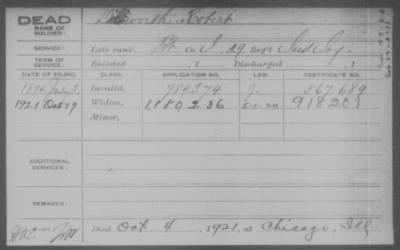 DEAD
NAME OF SOLDIER: Dilworth, Robert
SERVICE: Late rank, Co. I, 29 Reg't Ind. Inf.
TERM OF SERVICE: Enlisted , 1 Discharged , 1
DATE OF FILING. CLASS. APPLICATION NO. LAW. CERTIFICATE NO.
1890 July 3. Invalid, 784,374 J. 567,689
1921 Oct 19 Widow, 1,180,236 5-1-20 918201
Minor,
ADDITIONAL SERVICES:
REMARKS:
Died Oct 4, 1921, at Chicago, Ill